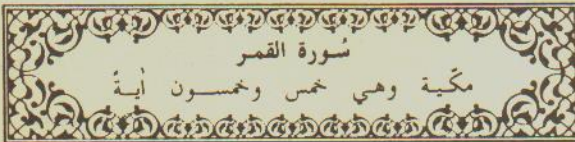 سُورة القمر
مكّية وهي خمس وخمسون أيةً